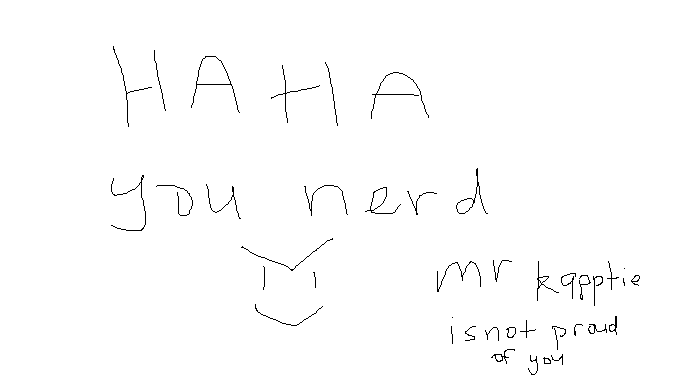 HAHA
you nerd
mr kapptie
is not proud
of you